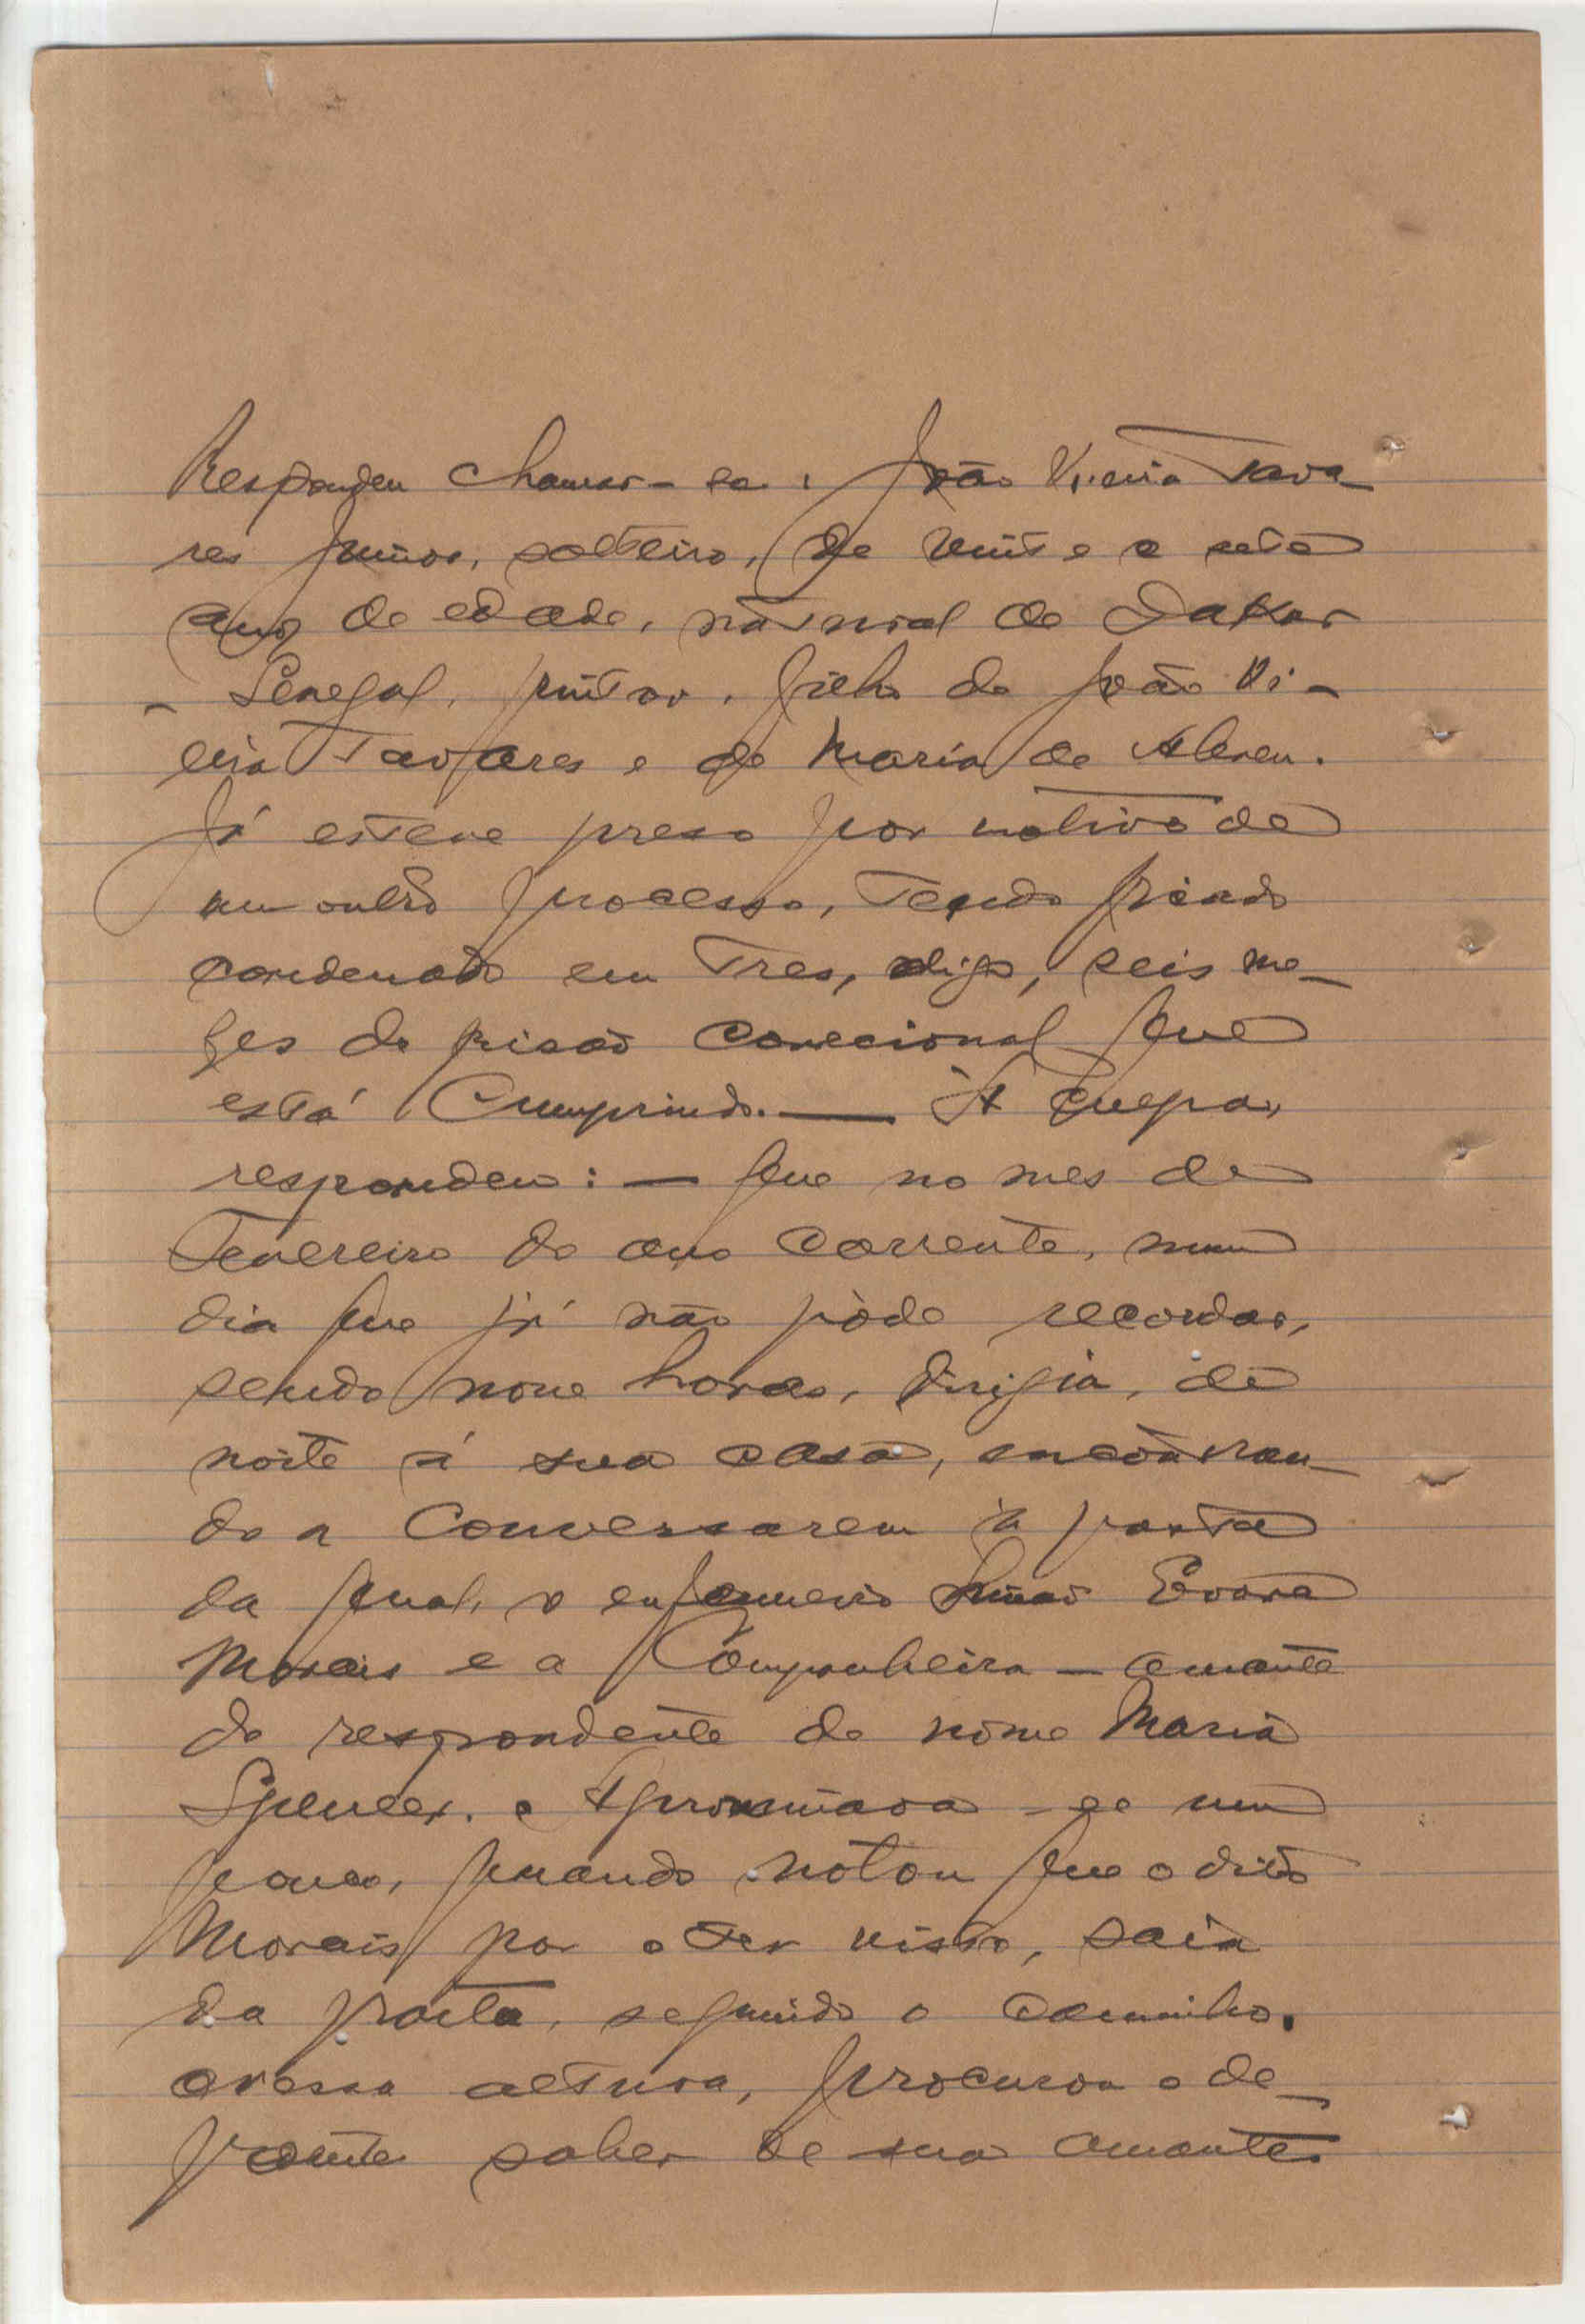 Respondeu chamar-se: João Vieira Tava-
res Junior, solteiro, de vinte e sete
anos de edade, natural de Dakar
- Senegal, pintor, filho de João Vi-
eira Tavares e de Maria de Abreu.
Já esteve preso por motivo de
um outro processo, tendo ficado
condenado em tres, digo, seis me-
zes de prisão correcional que
está cumprindo. — Á culpa,
respondeu: — que no mes de
Fevereiro do ano corrente, num
dia que já não póde recordar,
sendo nove horas, dirigia, de
noite á sua casa, encontran-
do a conversarem á porta
da qual, o enfermeiro Simão Evora
Morais e a companheira - amante
do respondente de nome Maria
Spencer. e Aproximava-se um
pouco, quando notou que o dito
Morais por o ter visto, saia
da porta, seguindo o caminho.
nessa altura, procurou o de-
poente saber de sua amante